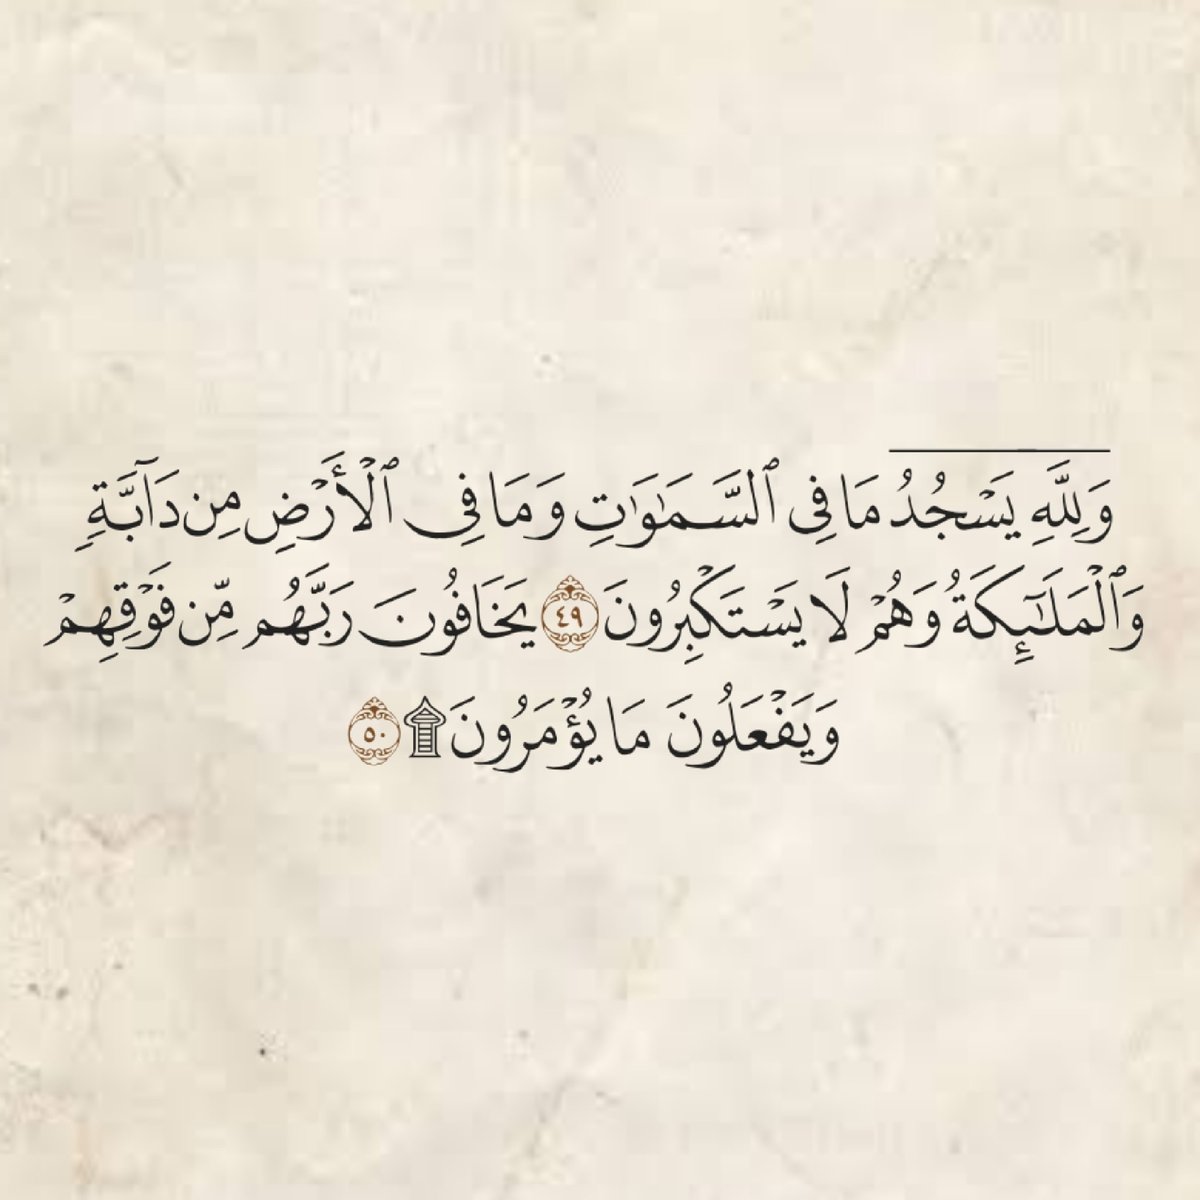 وَلِلَّهِ يَسْجُدُ مَا فِى ٱلسَّمَٰوَٰتِ وَمَا فِى ٱلْأَرْضِ مِن دَآبَّةٍ
وَٱلْمَلَٰٓئِكَةُ وَهُمْ لَا يَسْتَكْبِرُونَ ٤٩ يَخَافُونَ رَبَّهُم مِّن فَوْقِهِمْ
وَيَفْعَلُونَ مَا يُؤْمَرُونَ ۩ ٥٠